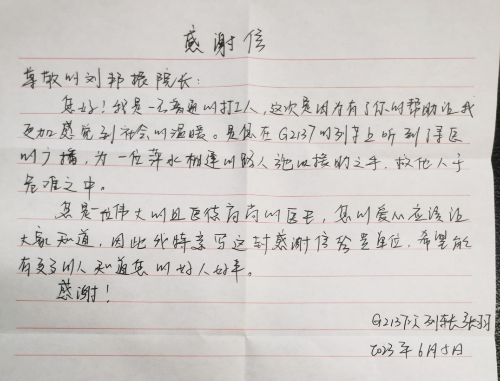 感谢信
尊敬的刘邦振院长:
您好!我是一名普通的打工人,这次是因为有了你的帮助让我
更加感觉到社会的温暖。是你在G2137的列车上听到寻医
的广播,为一位萍水相逢的路人跑以援助之手,救他人于
危难之中。
您是一位伟大的且医德高尚的医生,您的爱心应该让
大家知道,因此我特意写这封感谢信给贵单位,希望能
有更多的人知道您的好人好事。
感谢!
G2137次列车张羽
2023年6月5日